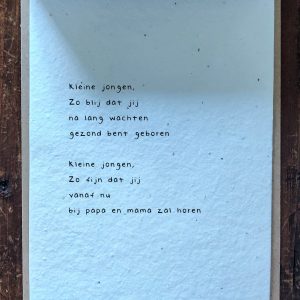 Kleine jongen,
Zo blij dat jij
na lang wachten
gezond bent geboren
Kleine jongen,
Zo fijn dat jij
vanaf nu
bij papa en mama zal horen